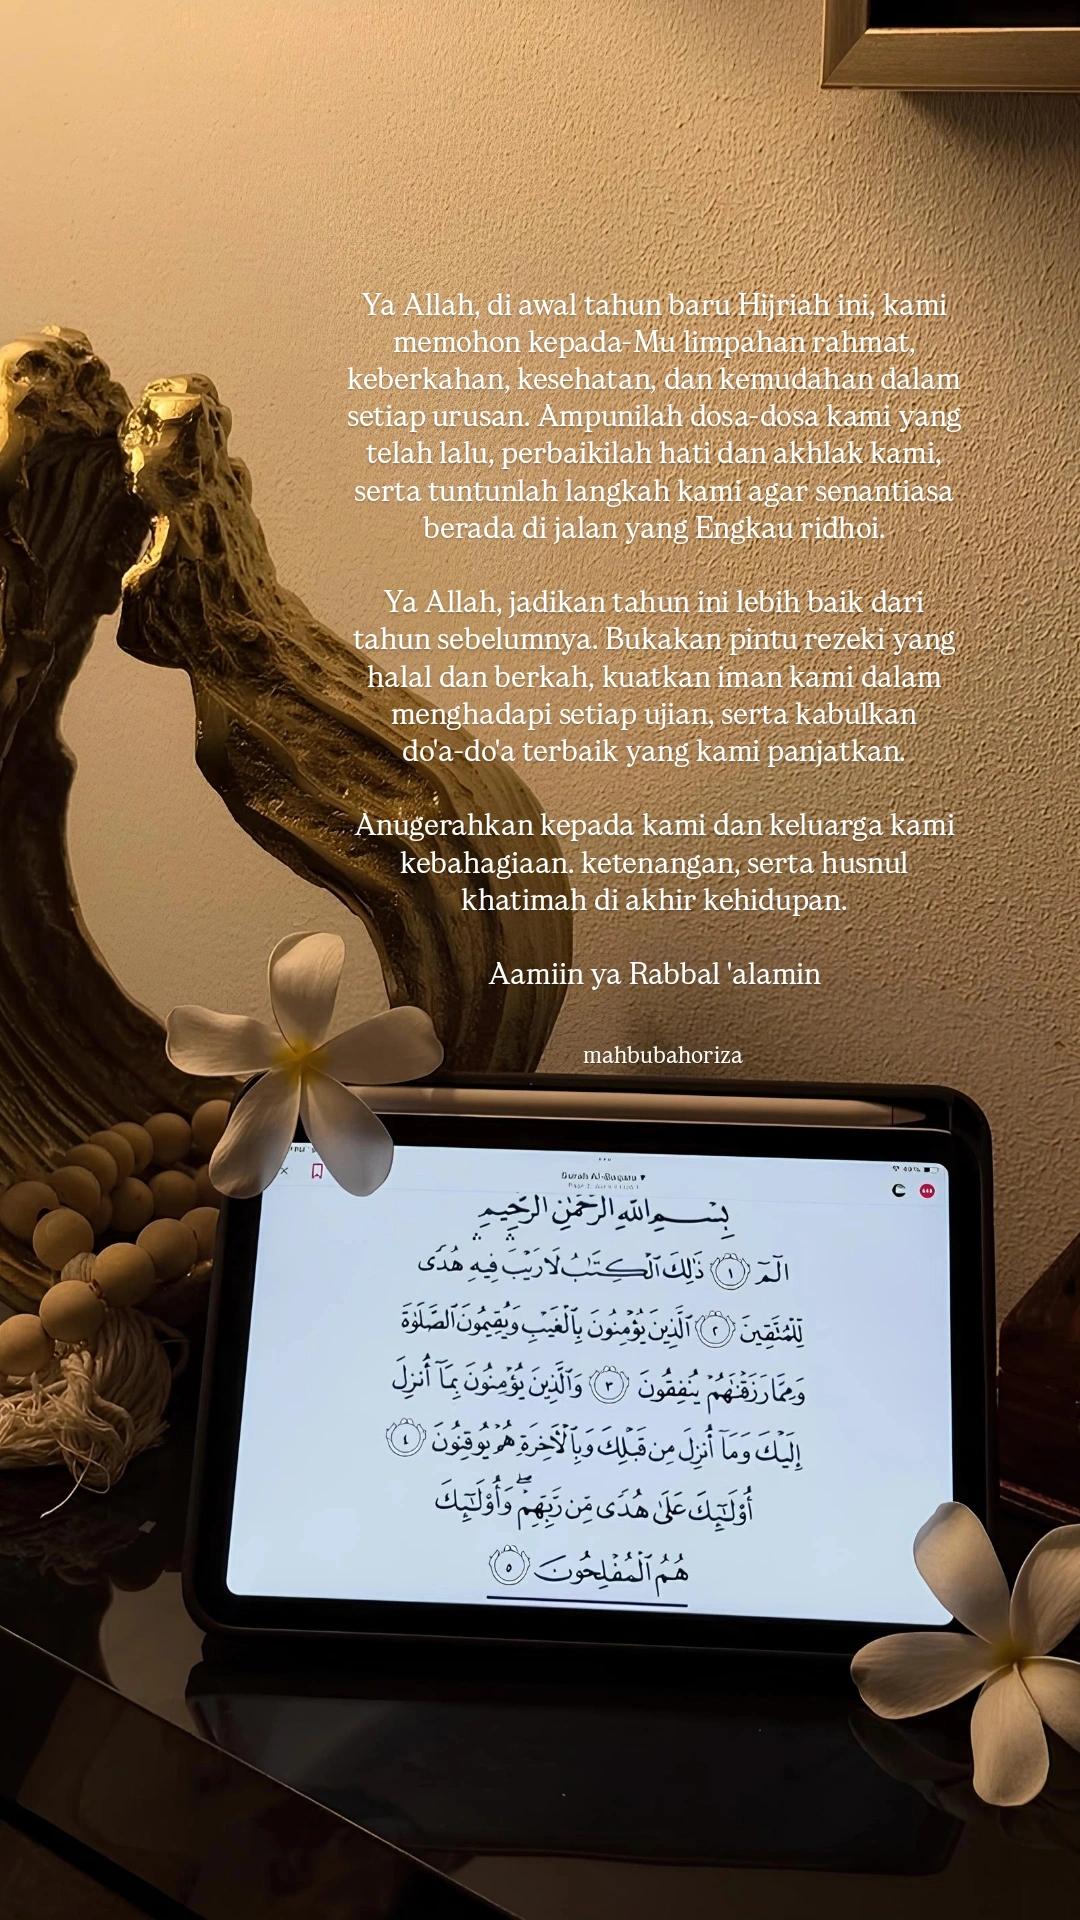 Ya Allah, di awal tahun baru Hijriah ini, kami
memohon kepada-Mu limpahan rahmat,
keberkahan, kesehatan, dan kemudahan dalam
setiap urusan. Ampunilah dosa-dosa kami yang
telah lalu, perbaikilah hati dan akhlak kami,
serta tuntunlah langkah kami agar senantiasa
berada di jalan yang Engkau ridhoi.
Ya Allah, jadikan tahun ini lebih baik dari
tahun sebelumnya. Bukakan pintu rezeki yang
halal dan berkah, kuatkan iman kami dalam
menghadapi setiap ujian, serta kabulkan
do'a-do'a terbaik yang kami panjatkan.
Anugerahkan kepada kami dan keluarga kami
kebahagiaan. ketenangan, serta husnul
khatimah di akhir kehidupan.
Aamiin ya Rabbal 'alamin
mahbubahoriza
49%
Surah Al-Baqara
بِسْمِ اللَّهِ الرَّحْمَٰنِ الرَّحِيمِ
الٓمٓ ١ ذَٰلِكَ ٱلْكِتَٰبُ لَا رَيْبَ فِيهِ هُدًى
لِّلْمُتَّقِينَ ٢ ٱلَّذِينَ يُؤْمِنُونَ بِٱلْغَيْبِ وَيُقِيمُونَ ٱلصَّلَوٰةَ
وَمِمَّا رَزَقْنَٰهُمْ يُنفِقُونَ ٣ وَٱلَّذِينَ يُؤْمِنُونَ بِمَآ أُنزِلَ
إِلَيْكَ وَمَآ أُنزِلَ مِن قَبْلِكَ وَبِٱلْءَاخِرَةِ هُمْ يُوقِنُونَ ٤
أُو۟لَٰٓئِكَ عَلَىٰ هُدًى مِّن رَّبِّهِمْ ۖ وَأُو۟لَٰٓئِكَ
هُمُ ٱلْمُفْلِحُونَ ٥